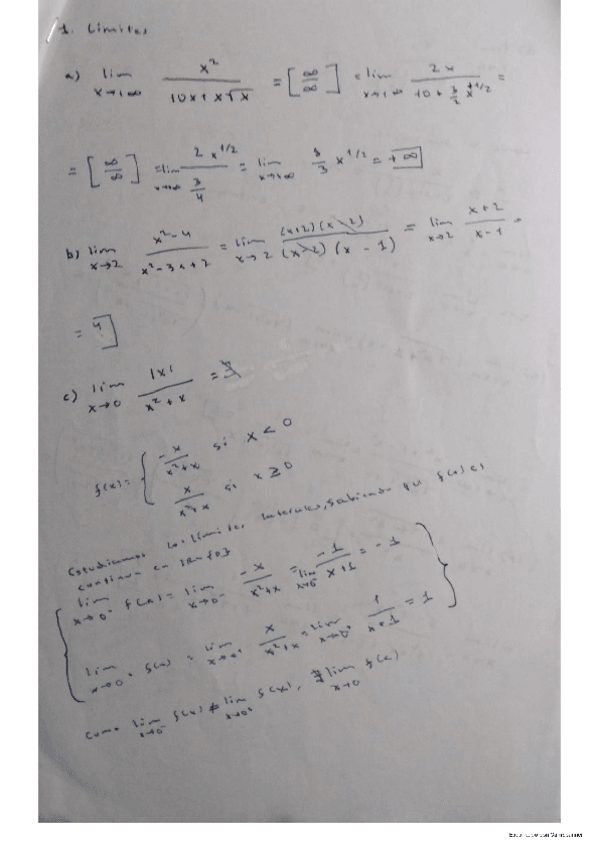 1. Limites
a) lim x→+∞ x² / (10x + x√x) = [∞/∞] = lim x→+∞ 2x / (10 + 3/2 x^1/2) =
= [∞/∞] = lim x→+∞ 2 x^1/2 / (3/4) = lim x→+∞ 8/3 x^1/2 = +∞
b) lim x→2 (x² - 4) / (x² - 3x + 2) = lim x→2 (x+2)(x-2) / (x-2)(x - 1) = lim x→2 (x+2) / (x-1) =
= 4
c) lim x→0 |x| / (x² + x) =
f(x) = { -x / (x²+x) si x < 0
x / (x²+x) si x ≥ 0
Estudiamos los límites laterales, sabiendo que f(x) es
continua en
lim x→0⁻ f(x) = lim x→0⁻ -x / (x²+x) = lim x→0⁻ -1 / (x+1) = -1
lim x→0⁺ f(x) = lim x→0⁺ x / (x²+x) = lim x→0⁺ 1 / (x+1) = 1
Como lim x→0⁻ f(x) ≠ lim x→0⁺ f(x), ∄ lim x→0 f(x)